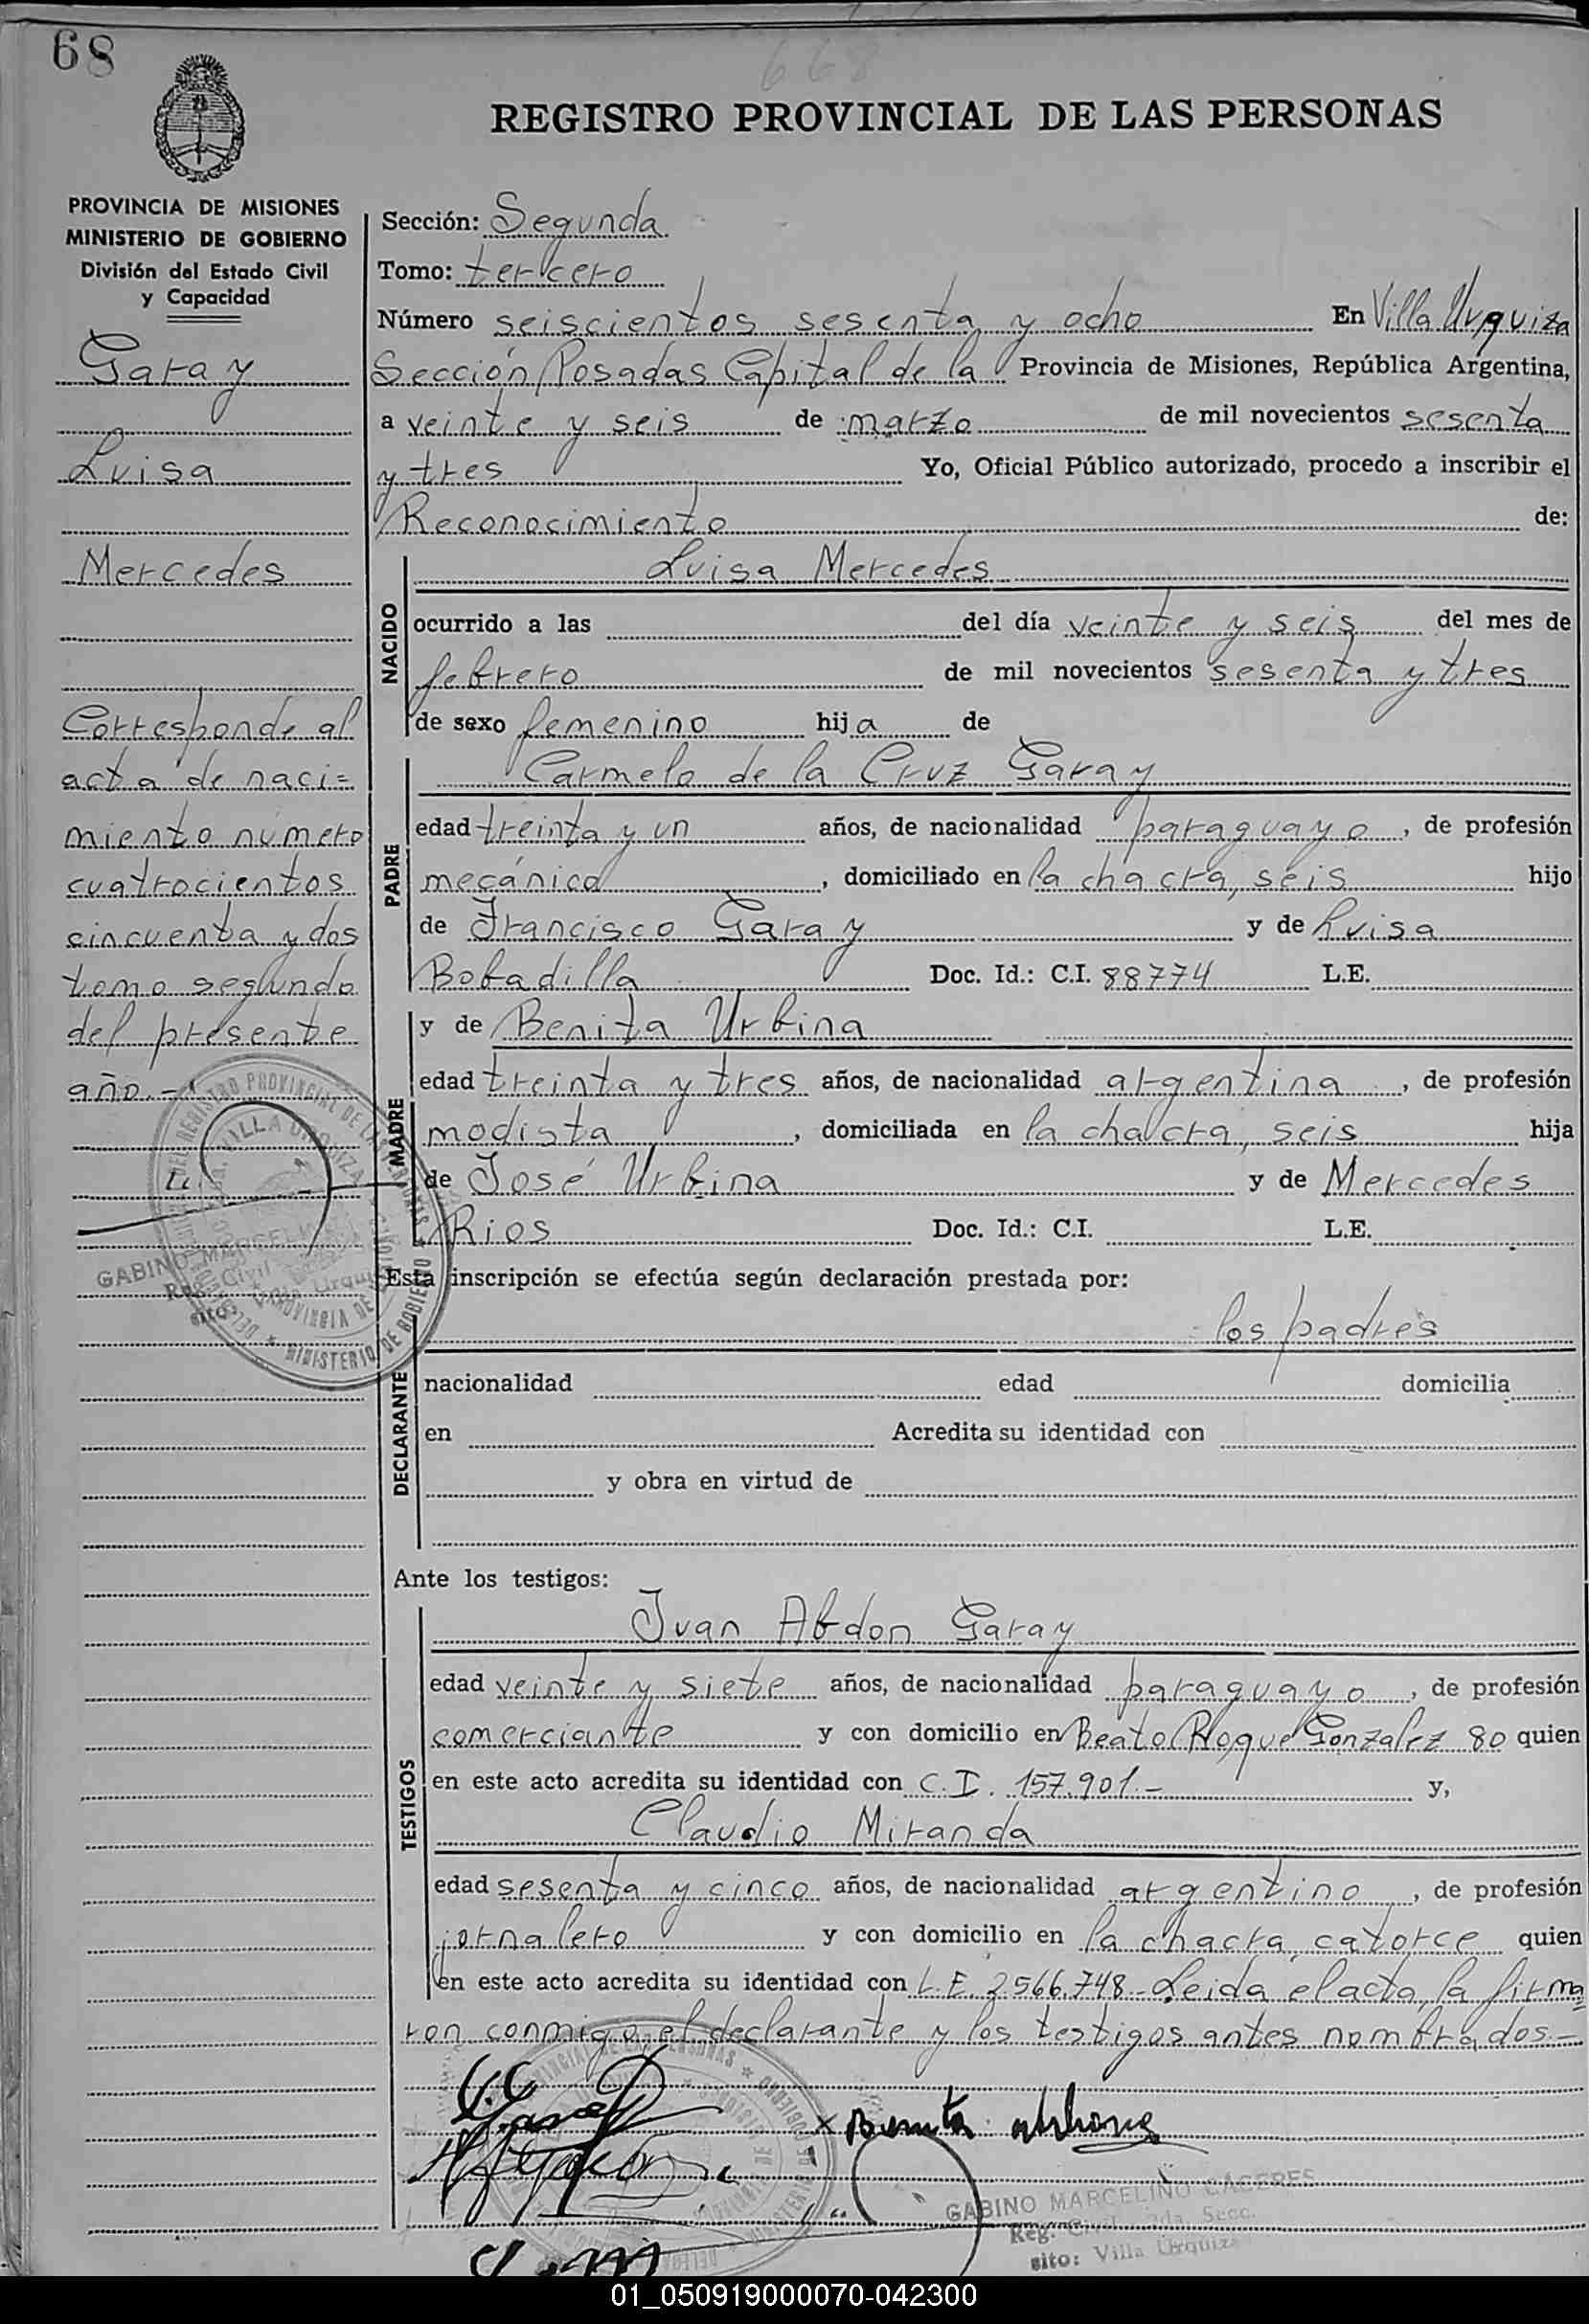 68
668
REGISTRO PROVINCIAL DE LAS PERSONAS
PROVINCIA DE MISIONES
MINISTERIO DE GOBIERNO
División del Estado Civil
y Capacidad
Garay
Luisa
Mercedes
Corresponde al
acta de naci=
miento número
cuatrocientos
cincuenta y dos
tomo segundo
del presente
año.-
GABINO MARCELI
Reg. Civil
sito: Villa Urqui
Sección: Segunda
Tomo: tercero
Número seiscientos sesenta y ocho En Villa Urquiza
Sección Posadas Capital de la Provincia de Misiones, República Argentina,
a veinte y seis de marzo de mil novecientos sesenta
y tres Yo, Oficial Público autorizado, procedo a inscribir el
Reconocimiento de:
Luisa Mercedes
NACIDO
ocurrido a las del día veinte y seis del mes de
febrero de mil novecientos sesenta y tres
de sexo femenino hija de
Carmelo de la Cruz Garay
PADRE
edad treinta y un años, de nacionalidad paraguayo, de profesión
mecánico, domiciliado en la chacra, seis hijo
de Francisco Garay y de Luisa
Bobadilla Doc. Id.: C.I. 88774 L.E.
y de Benita Urbina
MADRE
edad treinta y tres años, de nacionalidad argentina, de profesión
modista, domiciliada en la chacra, seis hija
de José Urbina y de Mercedes
Rios Doc. Id.: C.I. L.E.
Esta inscripción se efectúa según declaración prestada por:
los padres
DECLARANTE
nacionalidad edad domicilia
en Acredita su identidad con
y obra en virtud de
Ante los testigos:
Juan Abdon Garay
TESTIGOS
edad veinte y siete años, de nacionalidad paraguayo, de profesión
comerciante y con domicilio en Beato Roque Gonzalez 80 quien
en este acto acredita su identidad con C.I. 157.901.- y,
Claudio Miranda
edad sesenta y cinco años, de nacionalidad argentino, de profesión
jornalero y con domicilio en la chacra catorce quien
en este acto acredita su identidad con L.E. 2.566.748-Leida el acta, la firma
ron conmigo, el declarante y los testigos antes nombrados.-
Benita
GABINO MARCELINO CACERES
Reg. Civil 2da. Secc.
sito: Villa Urquiza
01_050919000070-042300